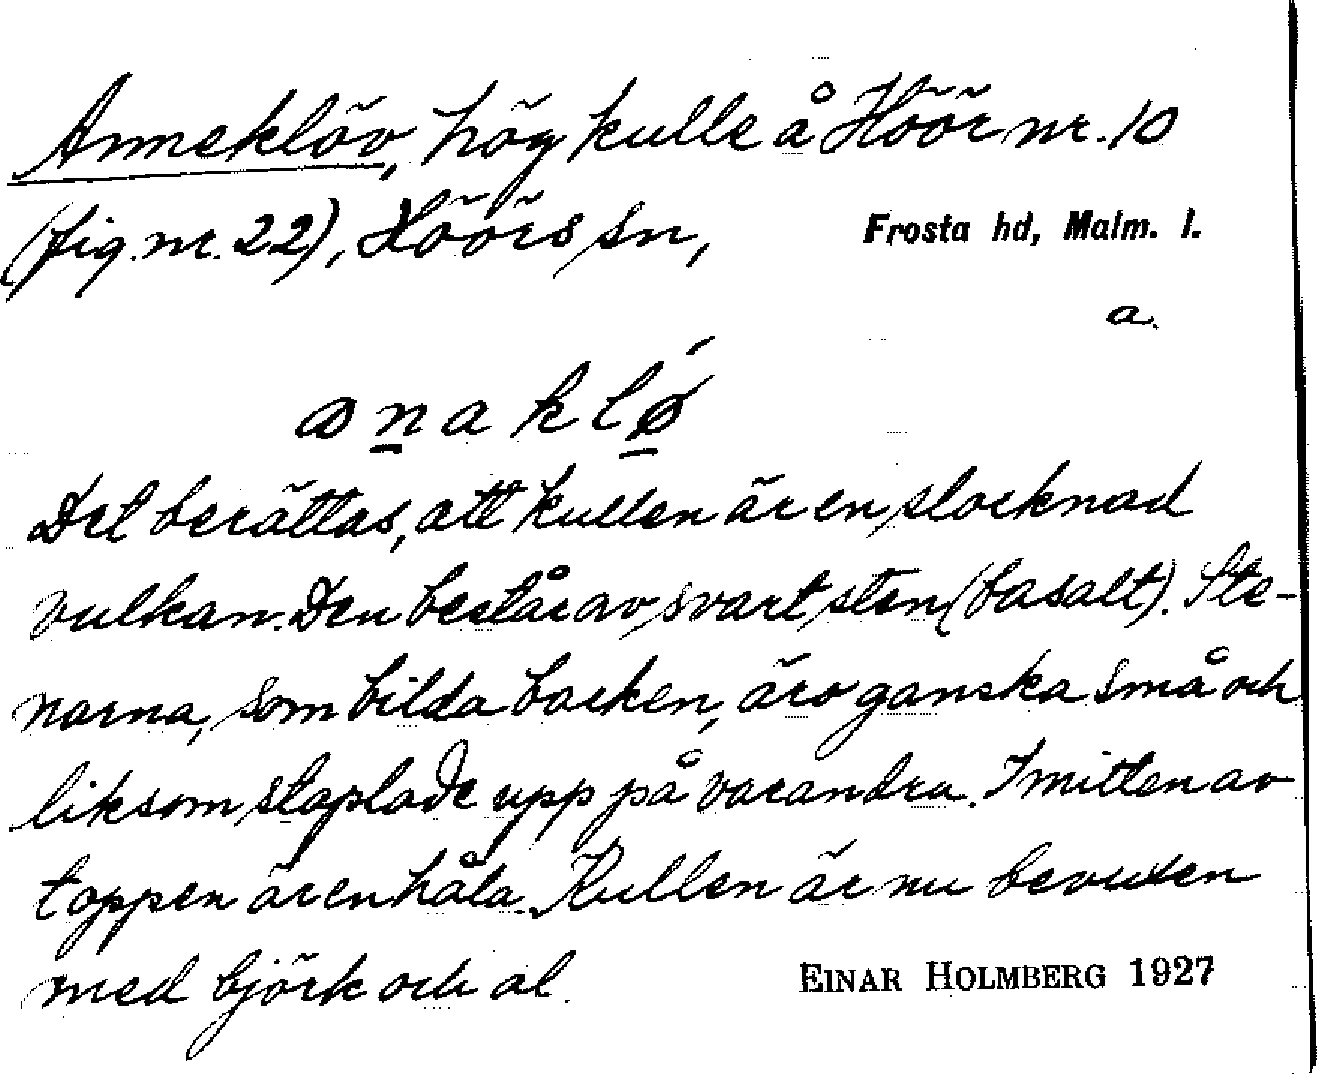 Anneklöv, hög kulle å Höör nr. 10
(fig. nr. 22), Höörs sn, Frosta hd, Malm. l.
a.
Det berättas, att kullen är en slocknad
vulkan. Den består av svart sten (basalt). Ste-
narna, som bilda backen, äro ganska små och
liksom staplade upp på varandra. I mitten av
toppen är en håla. Kullen är nu bevuxen
med björk och al.
EINAR HOLMBERG 1927